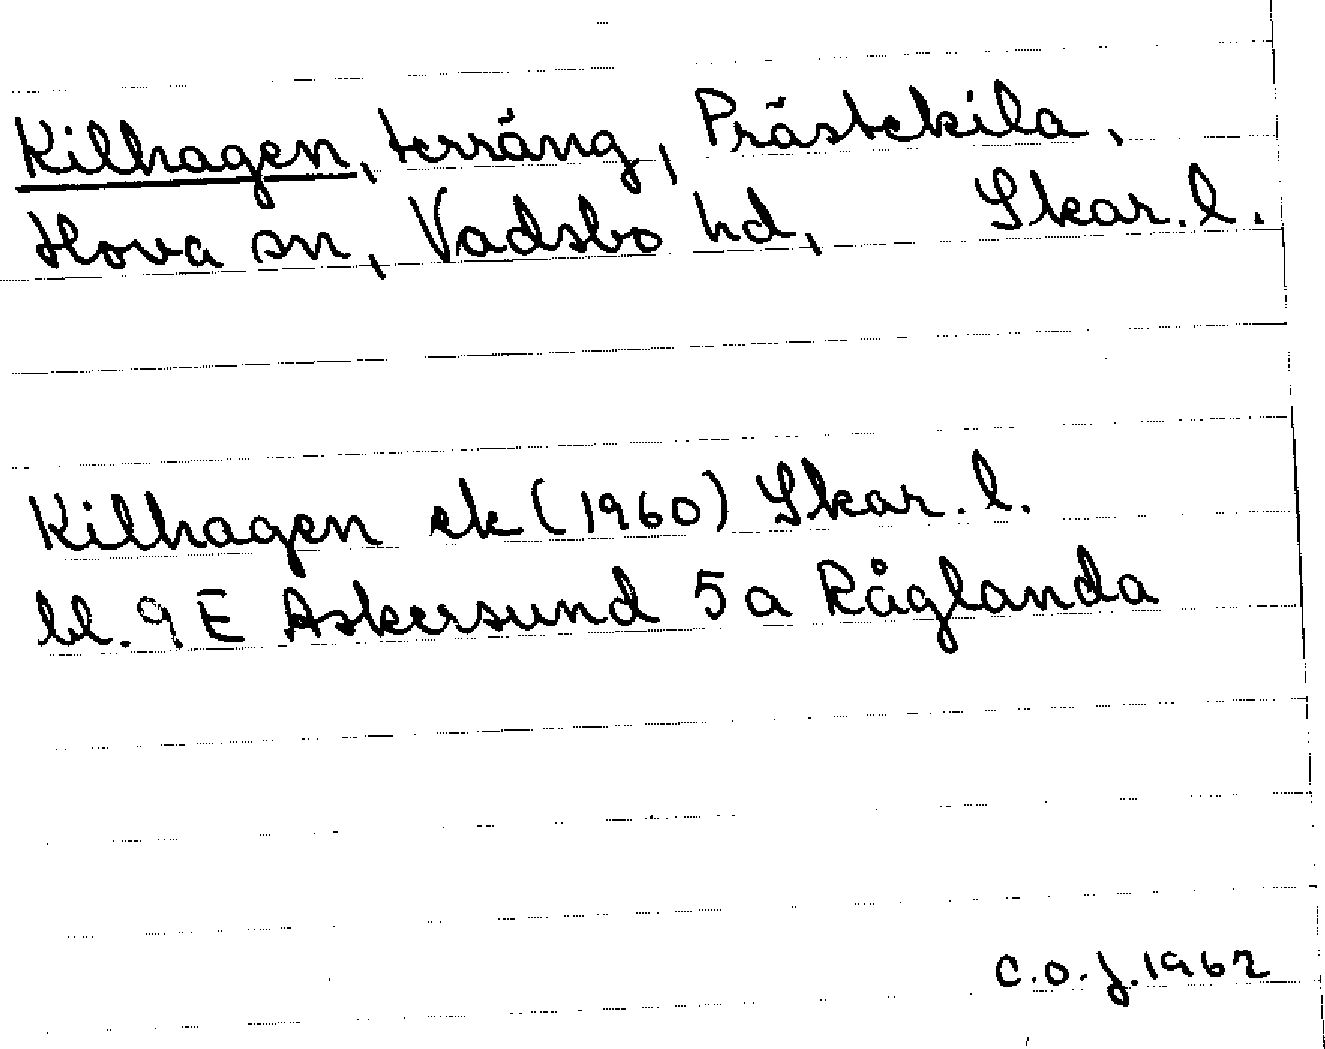 Kilhagen, terräng, Prästekila,
Hova sn, Vadsbo hd, Skar. l.
Kilhagen ek (1960) Skar. l.
bl. 9 E Askersund 5 a Råglanda
C.O.J. 1962